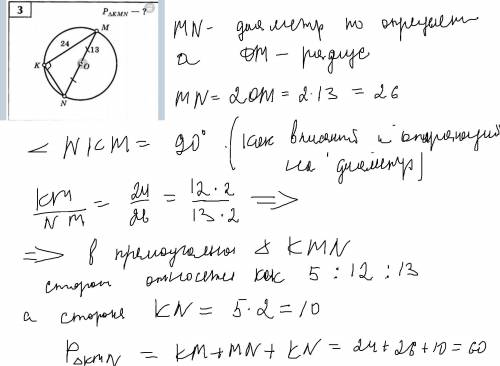 3
P△KMN — ?
M
24
13
K
O
N
MN - диаметр по определ
а OM - радиус
MN = 2OM = 2·13 = 26
∠ NKM = 90° (как вписаный и опирающий
на диаметр)
KM/NM = 24/26 = 12·2/13·2 =>
=> в прямоугольном △ KMN
стороны относятся как 5 : 12 : 13
а сторона KN = 5·2 = 10
P△KMN = KM + MN + KN = 24 + 26 + 10 = 60